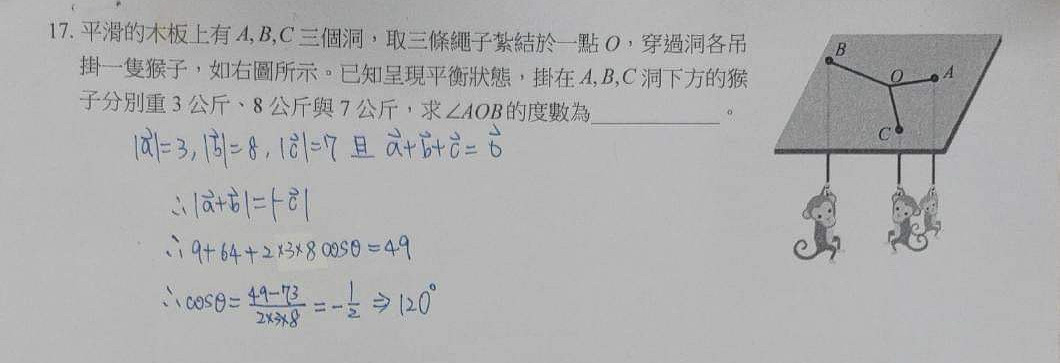 17. 平滑的木板上有 A, B, C 三個洞，取三條繩子紮結於一點 O，穿過洞各吊
掛一隻猴子，如右圖所示。已知呈現平衡狀態，掛在 A, B, C 洞下方的猴
子分別重 3 公斤、8 公斤與 7 公斤，求 ∠AOB 的度數為____________。
|a⃗|=3, |b⃗|=8, |c⃗|=7 且 a⃗+b⃗+c⃗=0⃗
∴|a⃗+b⃗|=|-c⃗|
∴9+64+2×3×8cosθ=49
∴cosθ=\frac{49-73}{2×3×8}=-\frac{1}{2}⇒120°
B
O
A
C